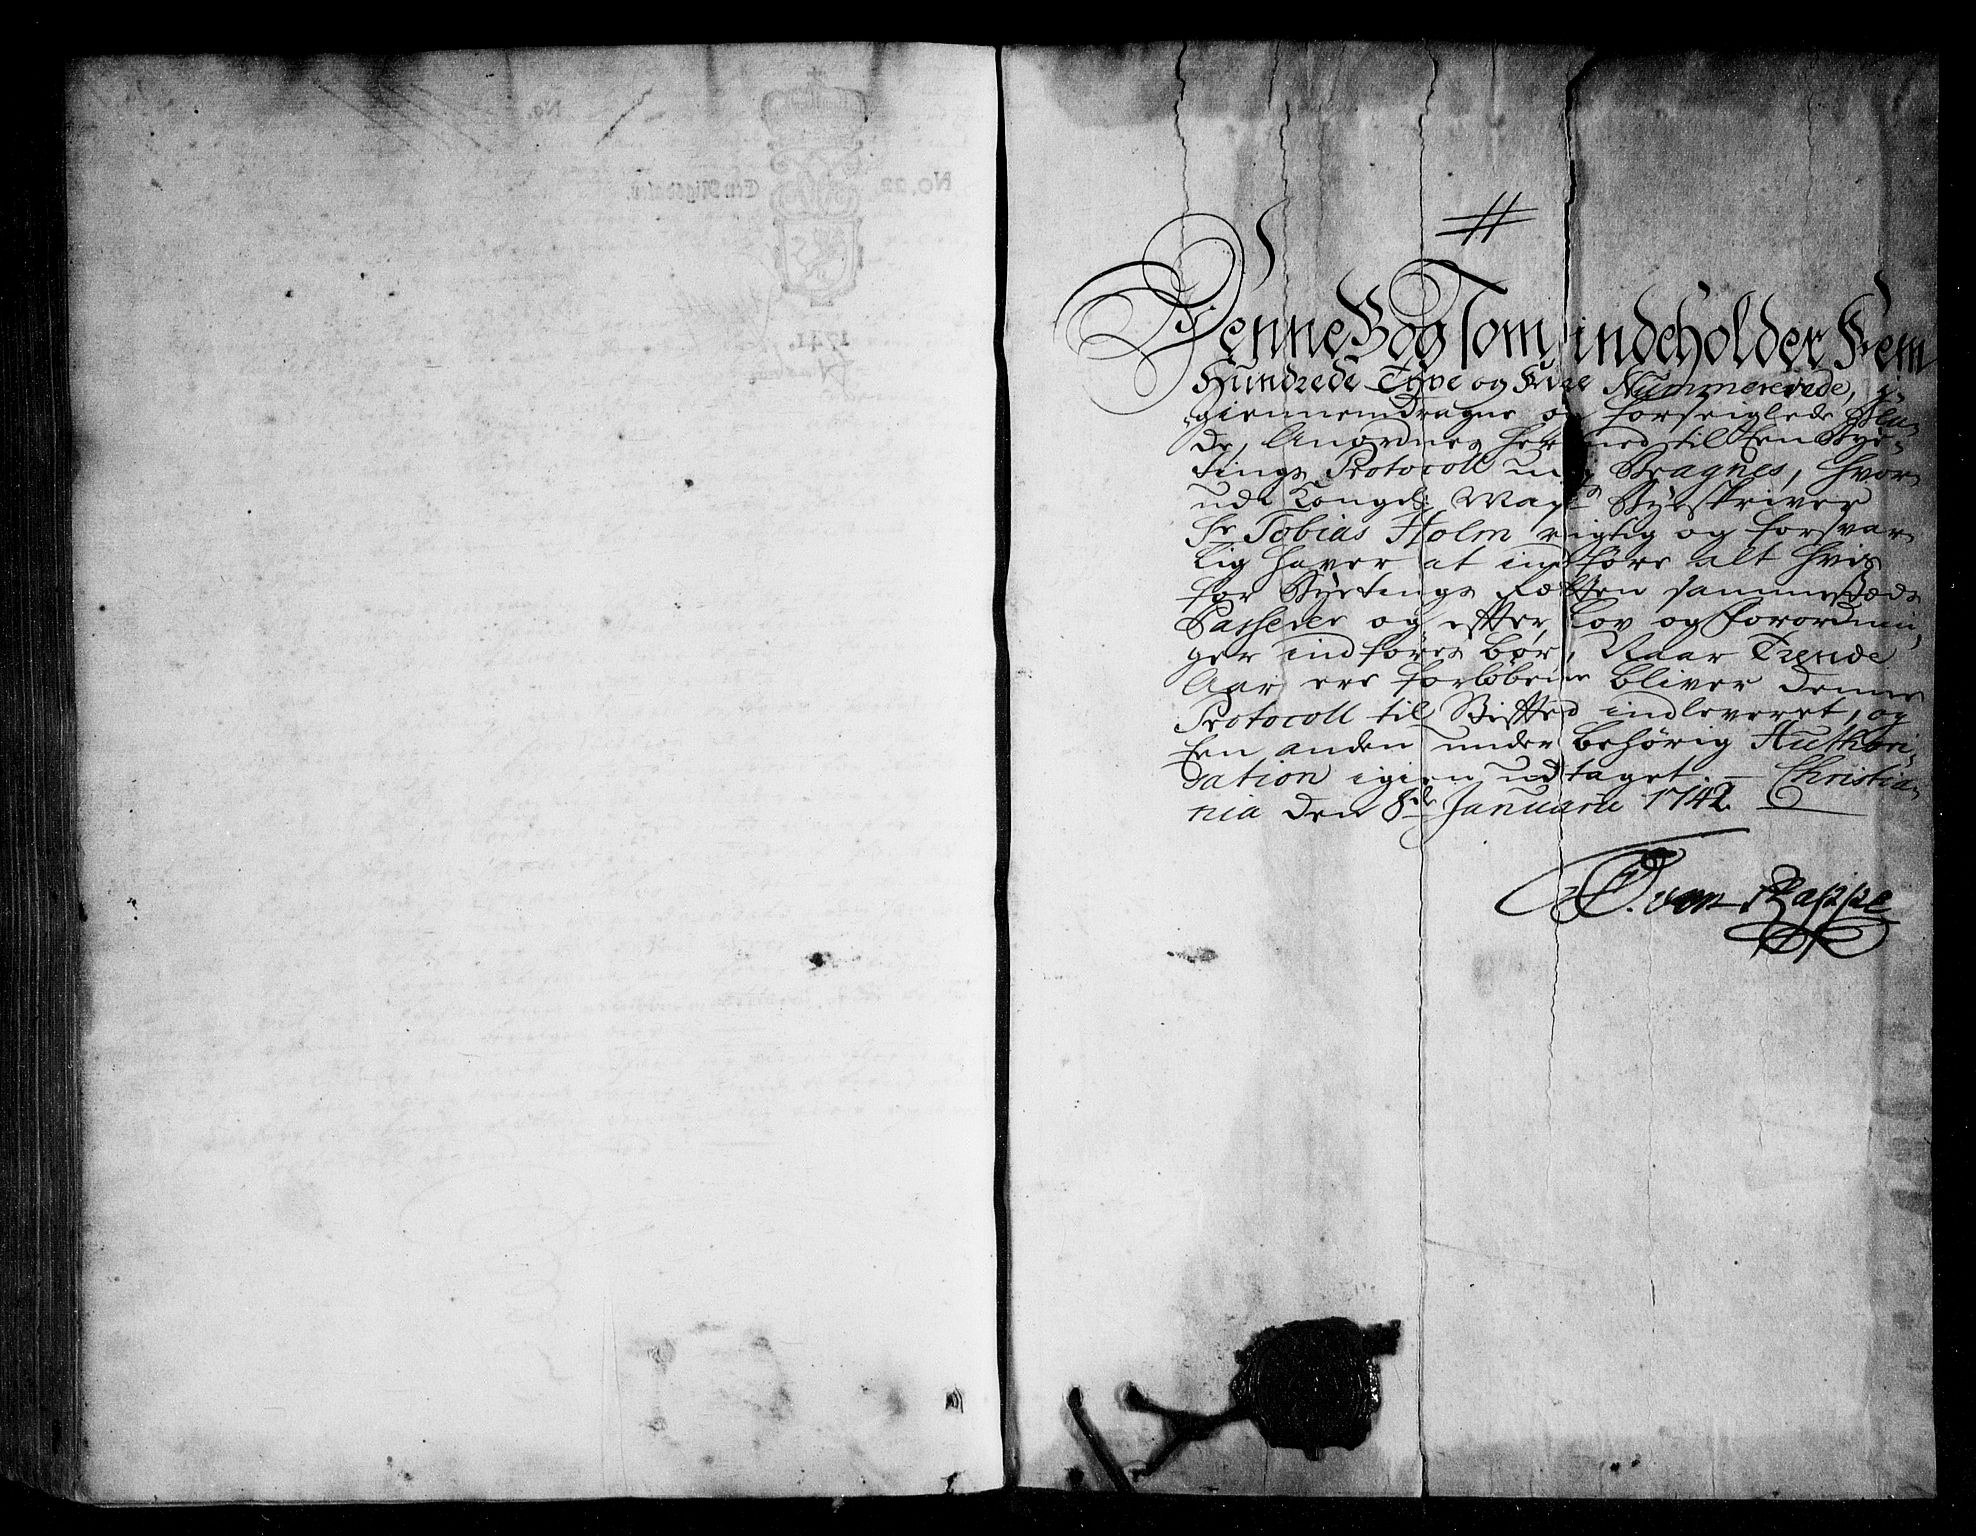 No.
No. 22. Een Rigsdaler.
1741.
Denne Bog som indeholder Fem
Hundrede Tyve og Fire Nummererede, i-
giennemdragne og forseiglede Bla-
de, Anordnes hermed til Een Bye-
tings Protocoll udj Bragnes, hvor-
udi Kongel: May:ts Byeskriver
Sr. Tobias Holm rigtig og forsvar-
lig haver at indføre alt hvis
for Byetings Rætten sammestæds
Passerer og efter Lov og Forordnin-
ger indføres bør, Naar Trende
Aar ere forløbene bliver denne
Protocoll til Stifted indleveret, og
Een anden under behørig Authori-
sation igien udtaget. - Christia-
nia den 8de Januarii 1742
von Rappe